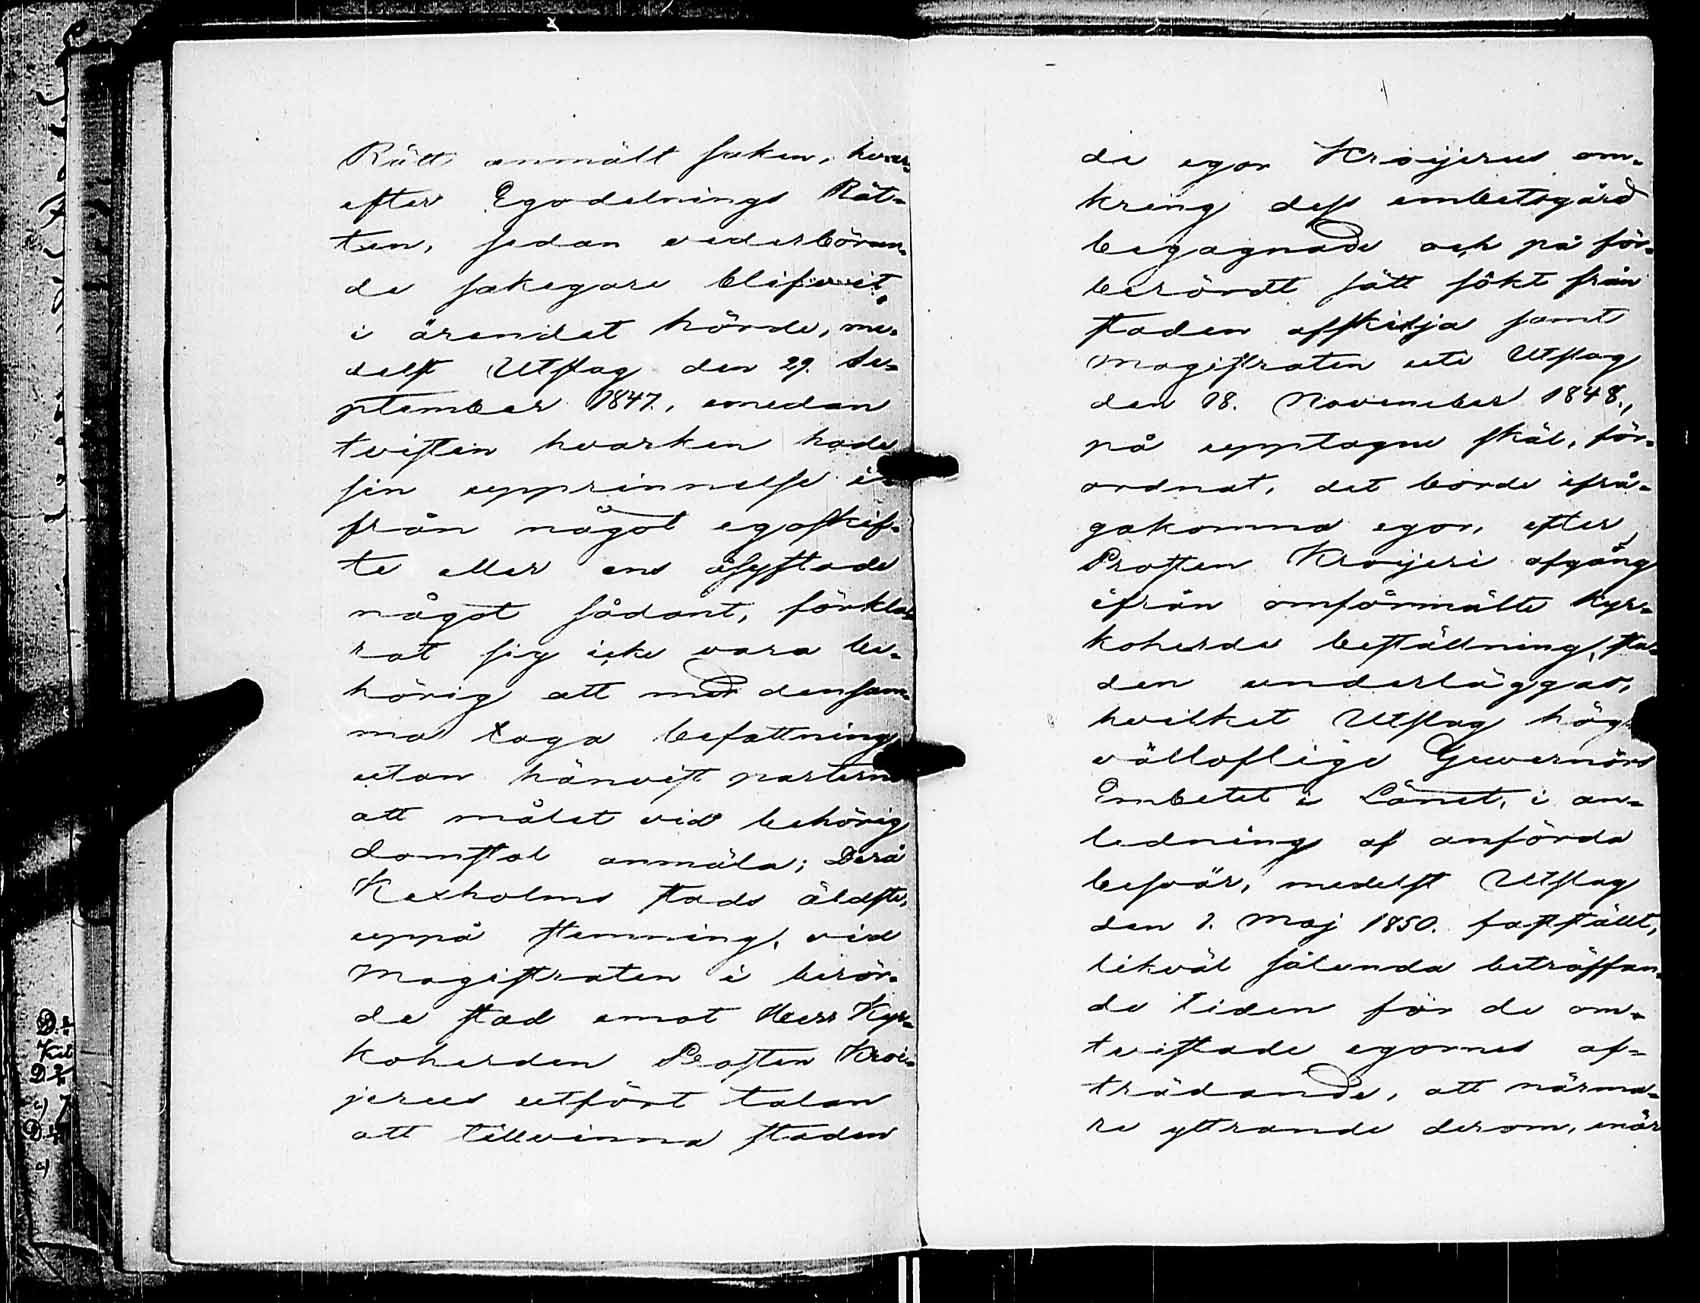 Rätt anmält saken, hvar-
efter Egodelnings Rät-
ten, sedan vederböran-
de sakegare blifvit,
i ärendet hörde, me-
delst Utslag den 29. Se-
ptember 1847., emedan
tvisten hvarken hade
sin upprinnelse i-
från något egoskif-
te eller ens åsyftade
något sådant, förkla-
rat sig icke vara be-
hörig att med densam-
ma taga befattning
utan hänvist parterne
att målet vid behörig
domstol anmäla; Derå
Kexholms stads äldste,
uppå stemning, vid
Magistraten i berör-
de stad emot Herr Kyr-
koherden Prosten Kroi-
jerus utfört talan
att tillvinna staden
de egor Kroijerus om-
kring dess embetsgård
begagnade och på för-
berördt sätt sökt från
staden afskilja samt
Magistraten uti Utslag
den 18. November 1848.,
på upptagne skäl, för-
ordnat, det borde ifrå-
gakomna egor, efter
Prosten Kroijeri afgång
ifrån omförmälte Kyr-
koherde beställning, sta-
den underläggas,
hvilket Utslag hög-
välloflige Guvernörs
Embetet i Länet, i an-
ledning af anförda
besvär, medelst Utslag
den 1. Maj 1850. fastställt,
likväl sålunda beträffan-
de tiden för de om-
tvistade egornes af-
trädande, att närma-
re yttrande derom, enär
D:o
D:o